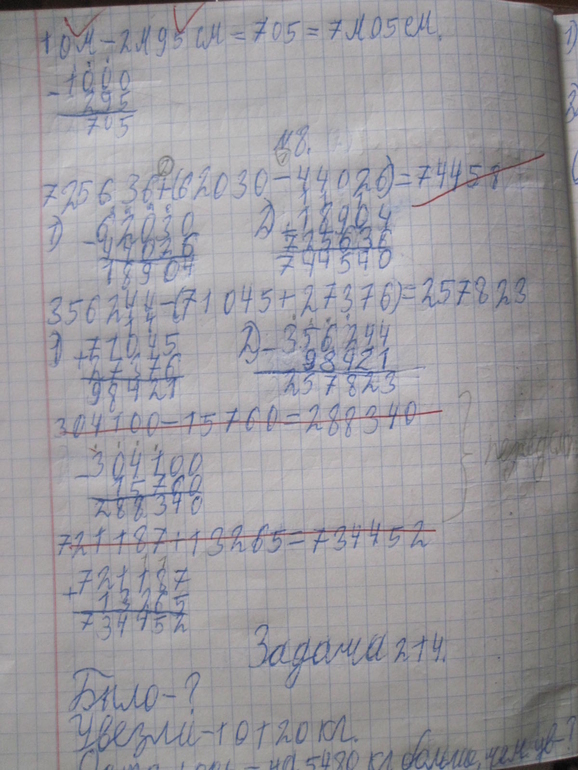 10м-2м95см=705=7м05см.
-1000
295
705
№8.
725636+(62030-44026)=74458
1) 62030 2) 18904
-44026 +725636
18904 744540
356244-(71045+27376)=257823
1) 71045 2) -356244
+27376 98421
98421 257823
304100-15760=288340
-304100
15760
288340
721187+13265=734452
721187
+13265
734452
Задача 214.
Было-?
Увезли-10120кг.
на 5480 кг больше, чем ув-?